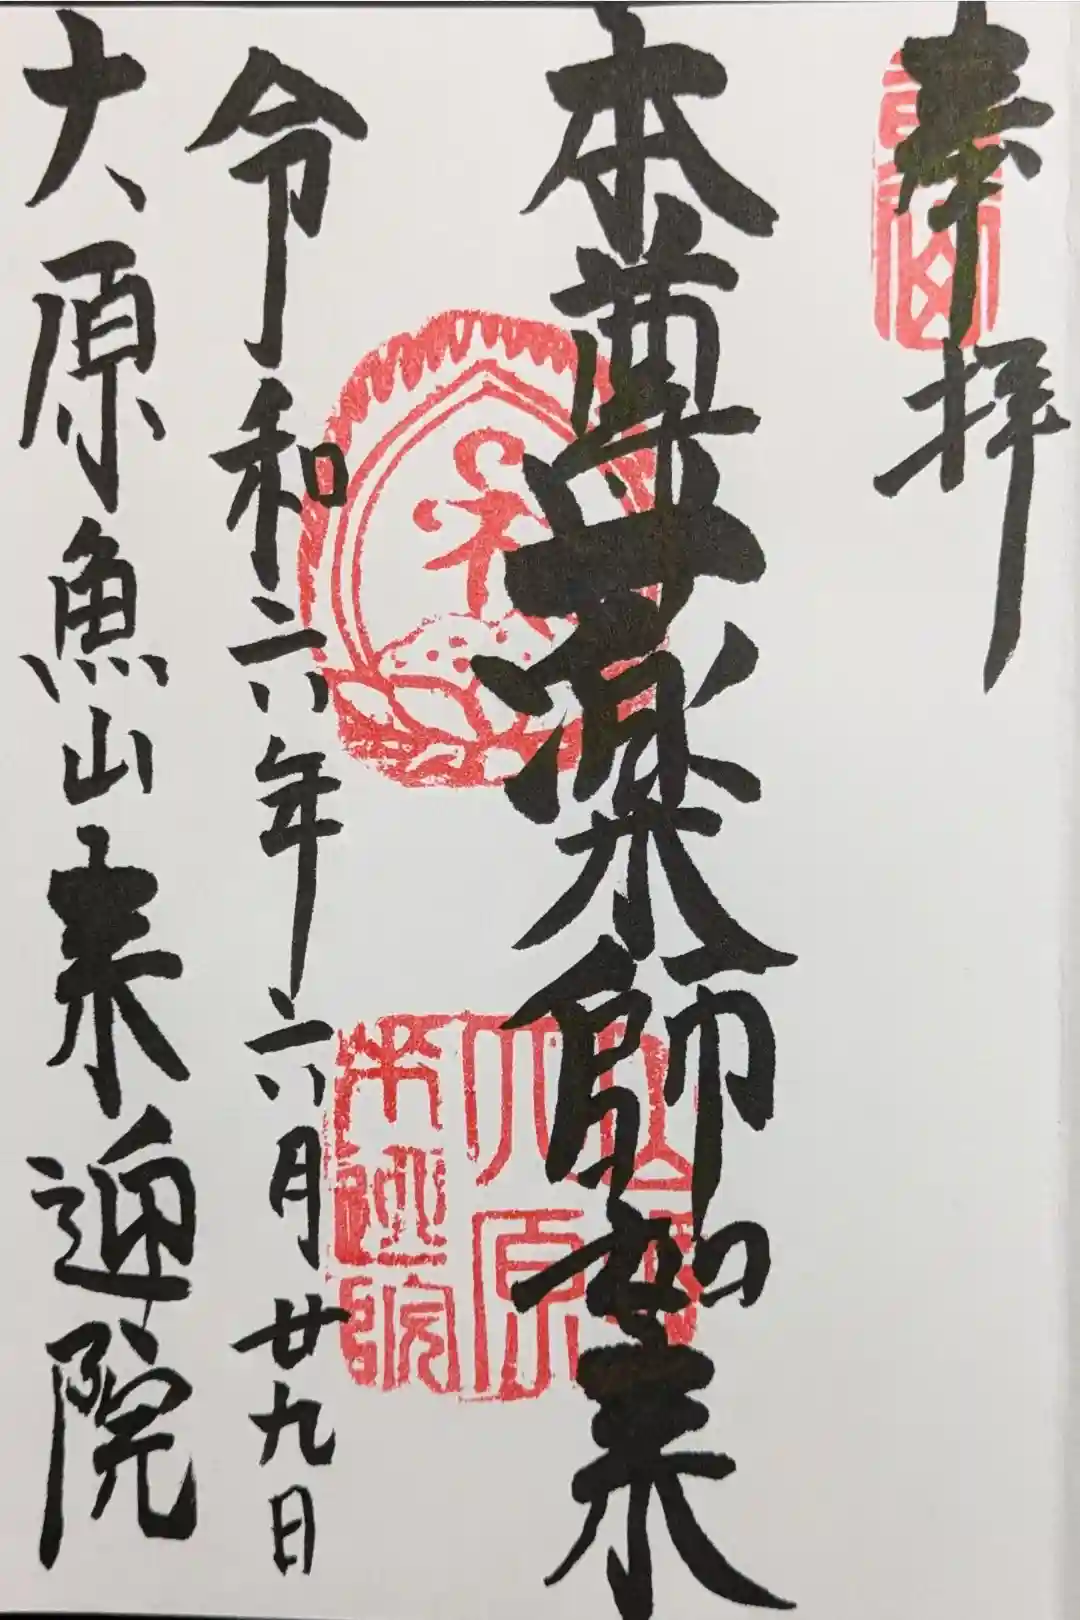 奉拝
本尊薬師如来
令和六年六月廿九日
大原魚山来迎院
来迎院
大原